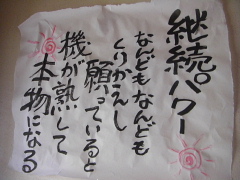 継続パワー
なんどもなんども
くりかえし
願っていると
機が熟して
本物になる